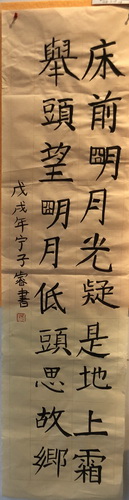 床前明月光疑是地上霜
舉頭望明月低頭思故鄉
戊戌年宁子睿書